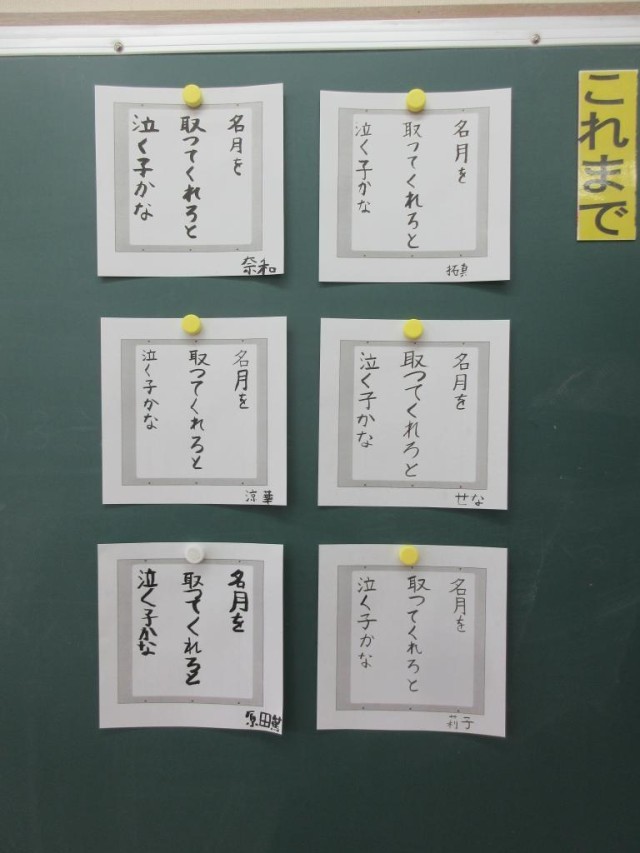 これまで
名月を
取ってくれろと
泣く子かな
奈和
名月を
取ってくれろと
泣く子かな
拓真
名月を
取ってくれろと
泣く子かな
涼華
名月を
取ってくれろと
泣く子かな
せな
名月を
取ってくれろと
泣く子かな
原田
名月を
取ってくれろと
泣く子かな
莉子